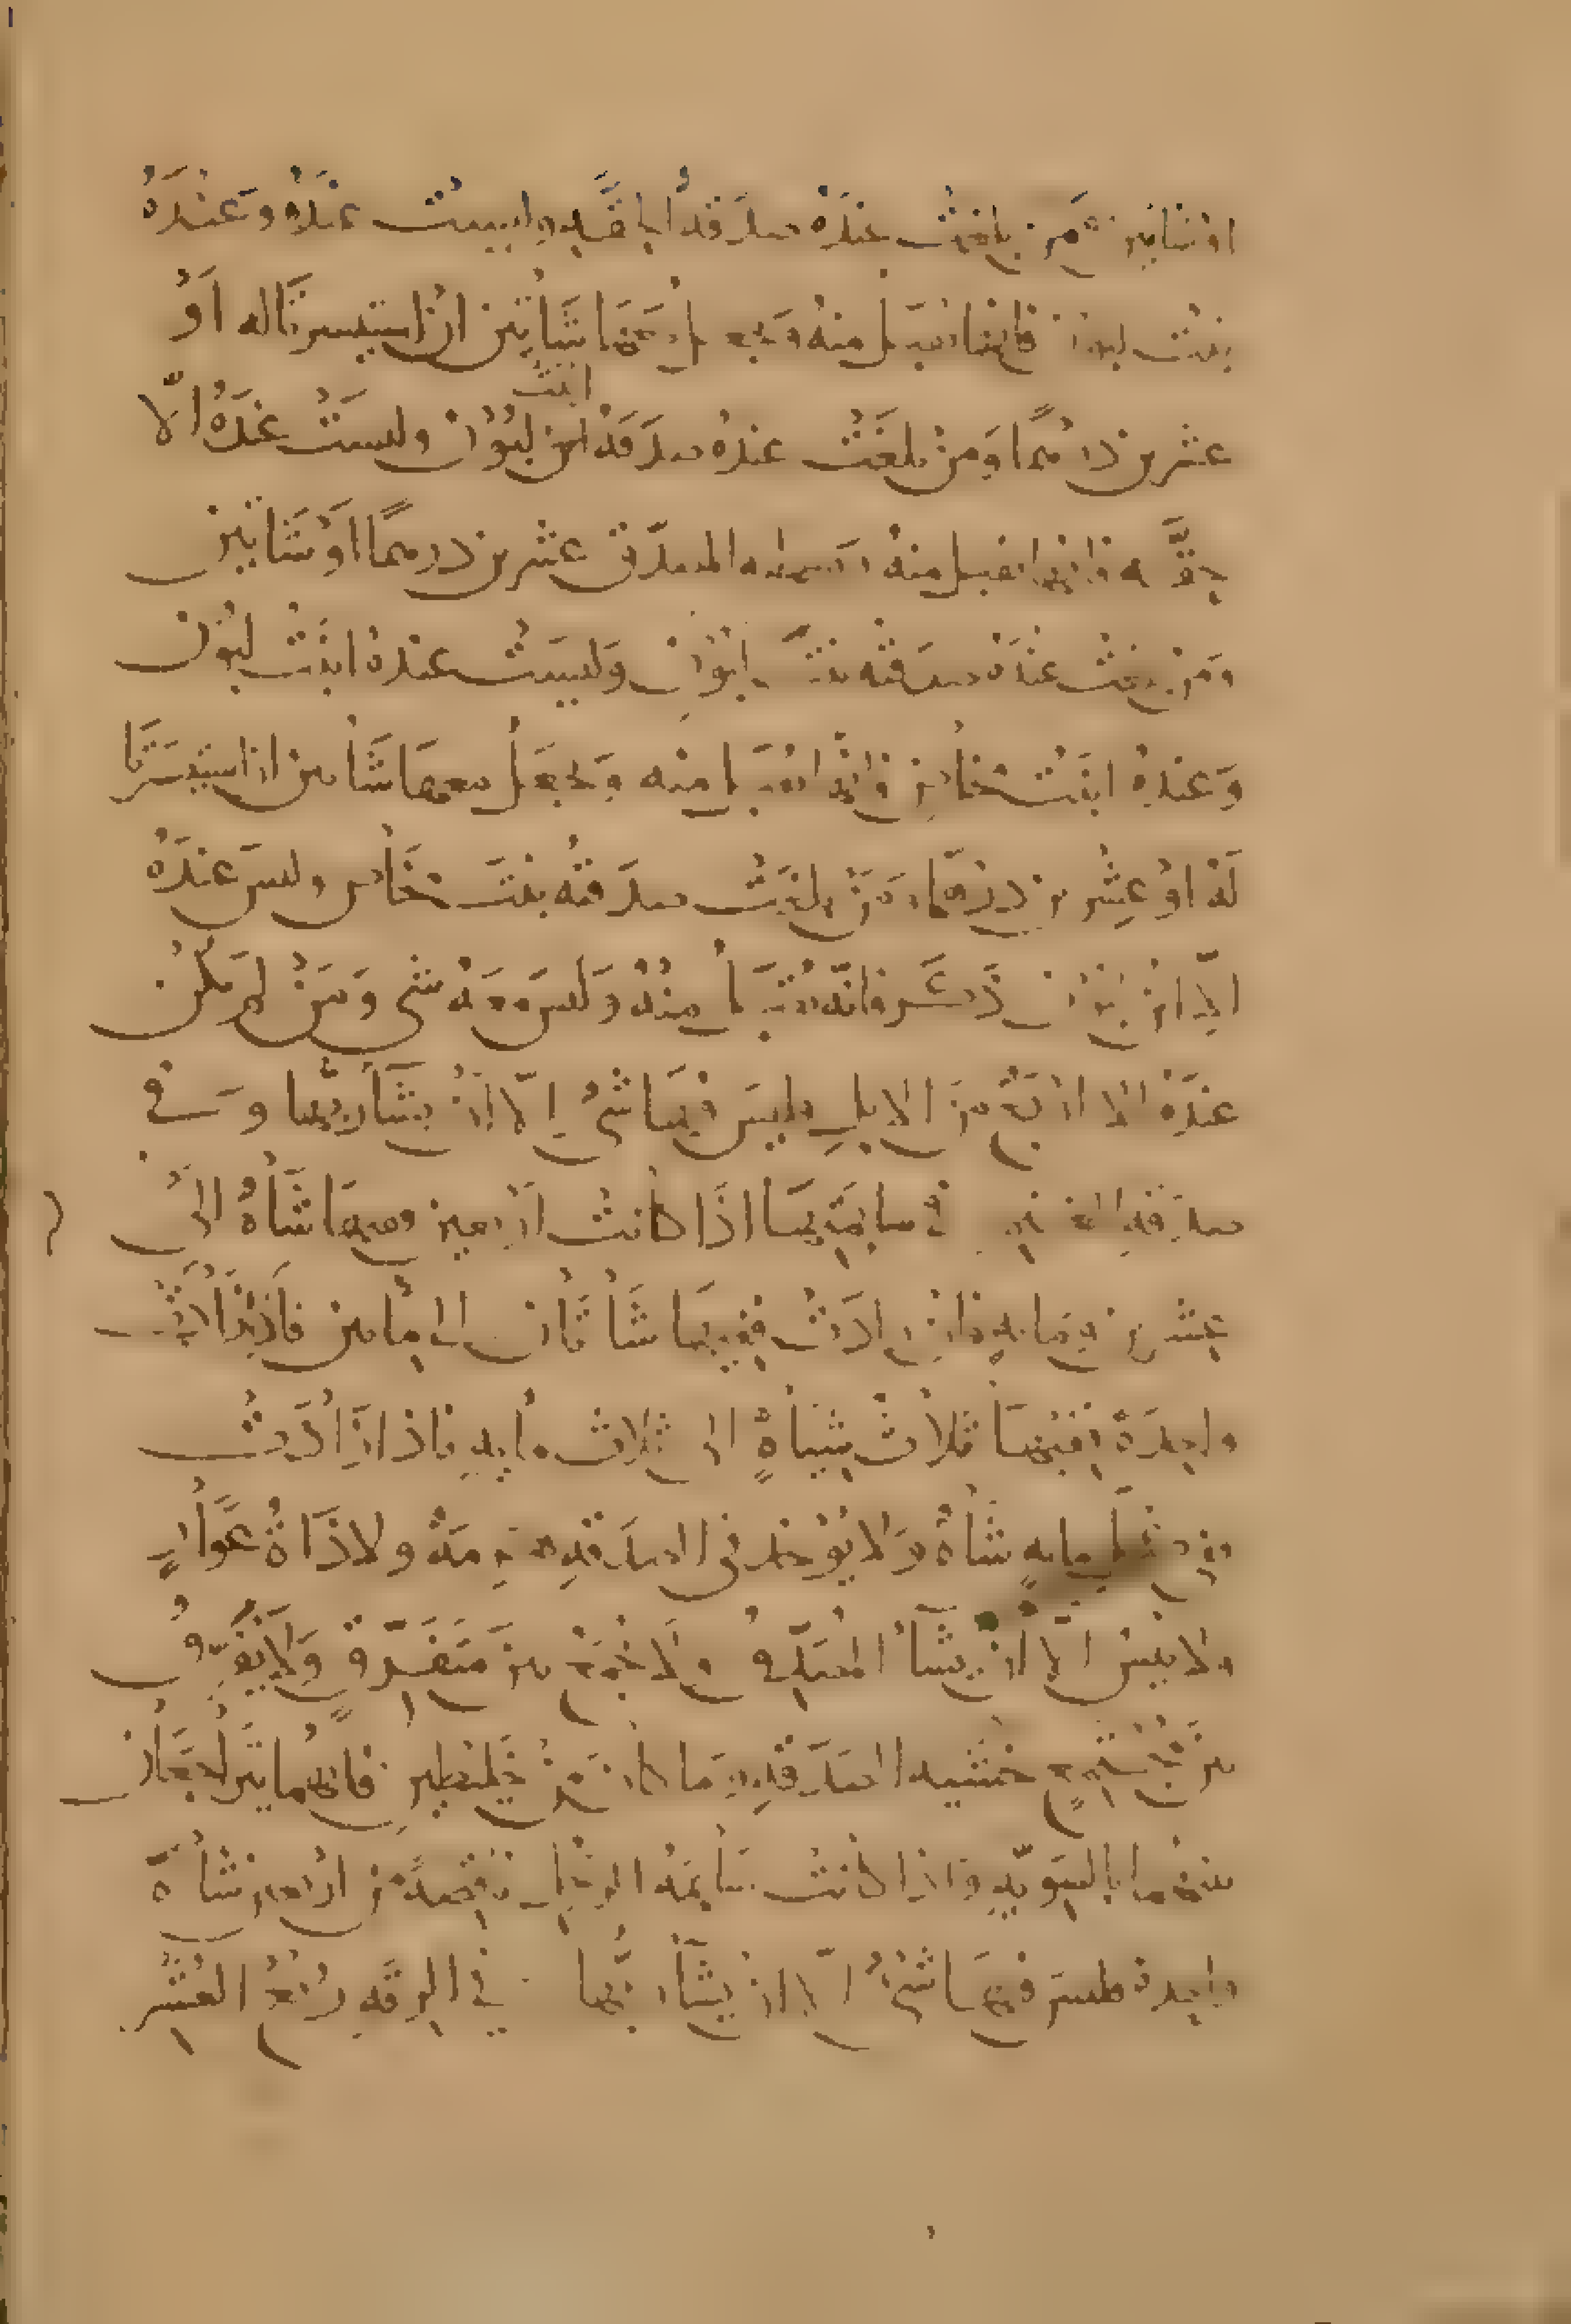 او شاتين ومن بلغت عنده صدقة الحقه وليست عنده وعنده
بنت لبون فانها تقبل منه ويجعل معها شاتين ان استيسرتا له او
عشرين درهما ومن بلغت عنده صدقة ابن لبون وليست عنده الا
ابنت
حقه فانها تقبل منه ويعطيه المصدق عشرين درهما او شاتين
ومن بلغت عنده صدقته بنت لبون وليست عنده ابنت لبون
وعنده ابنت مخاض فانها تقبل منه ويجعل معها شاتين ان استيسرتا
له او عشرين درهما ومن بلغت صدقته بنت مخاض وليس عنده
الا ابن لبون ذكر فانه يقبل منه وليس معه شي ومن لم يكن
عنده الا اربع من الابل فليس فيها شي الا ان يشا ربها وفي
صدقه الغنم في سايمتها اذا كانت اربعين ففيها شاة الى
عشرين ومايه فان زادت ففيها شاتان الى مايتين فاذا زادت
واحدة ففيها ثلاث شياه الى ثلاث مايه فاذا زادت
ففي كل مايه شاة ولا يوخذ في الصدقه هرمة ولا ذات عوار
ولا تيس الا ان يشا المصدق ولا يجمع بين متفرق ولا يفرق
بين مجتمع خشيه الصدقه وما كان من خليطين فانهما يتراجعان
بينهما بالسويه واذا كانت سايمة الرجل ناقصة من اربعين شاة
واحدة فليس فيها شي الا ان يشا ربها في الرقه ربع العشر